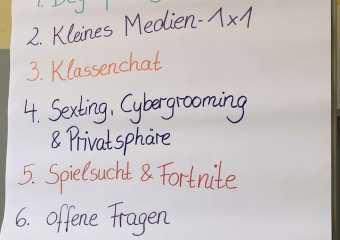 2. Kleines Medien-1x1
3. Klassenchat
4. Sexting, Cybergrooming
& Privatsphäre
5. Spielsucht & Fortnite
6. offene Fragen